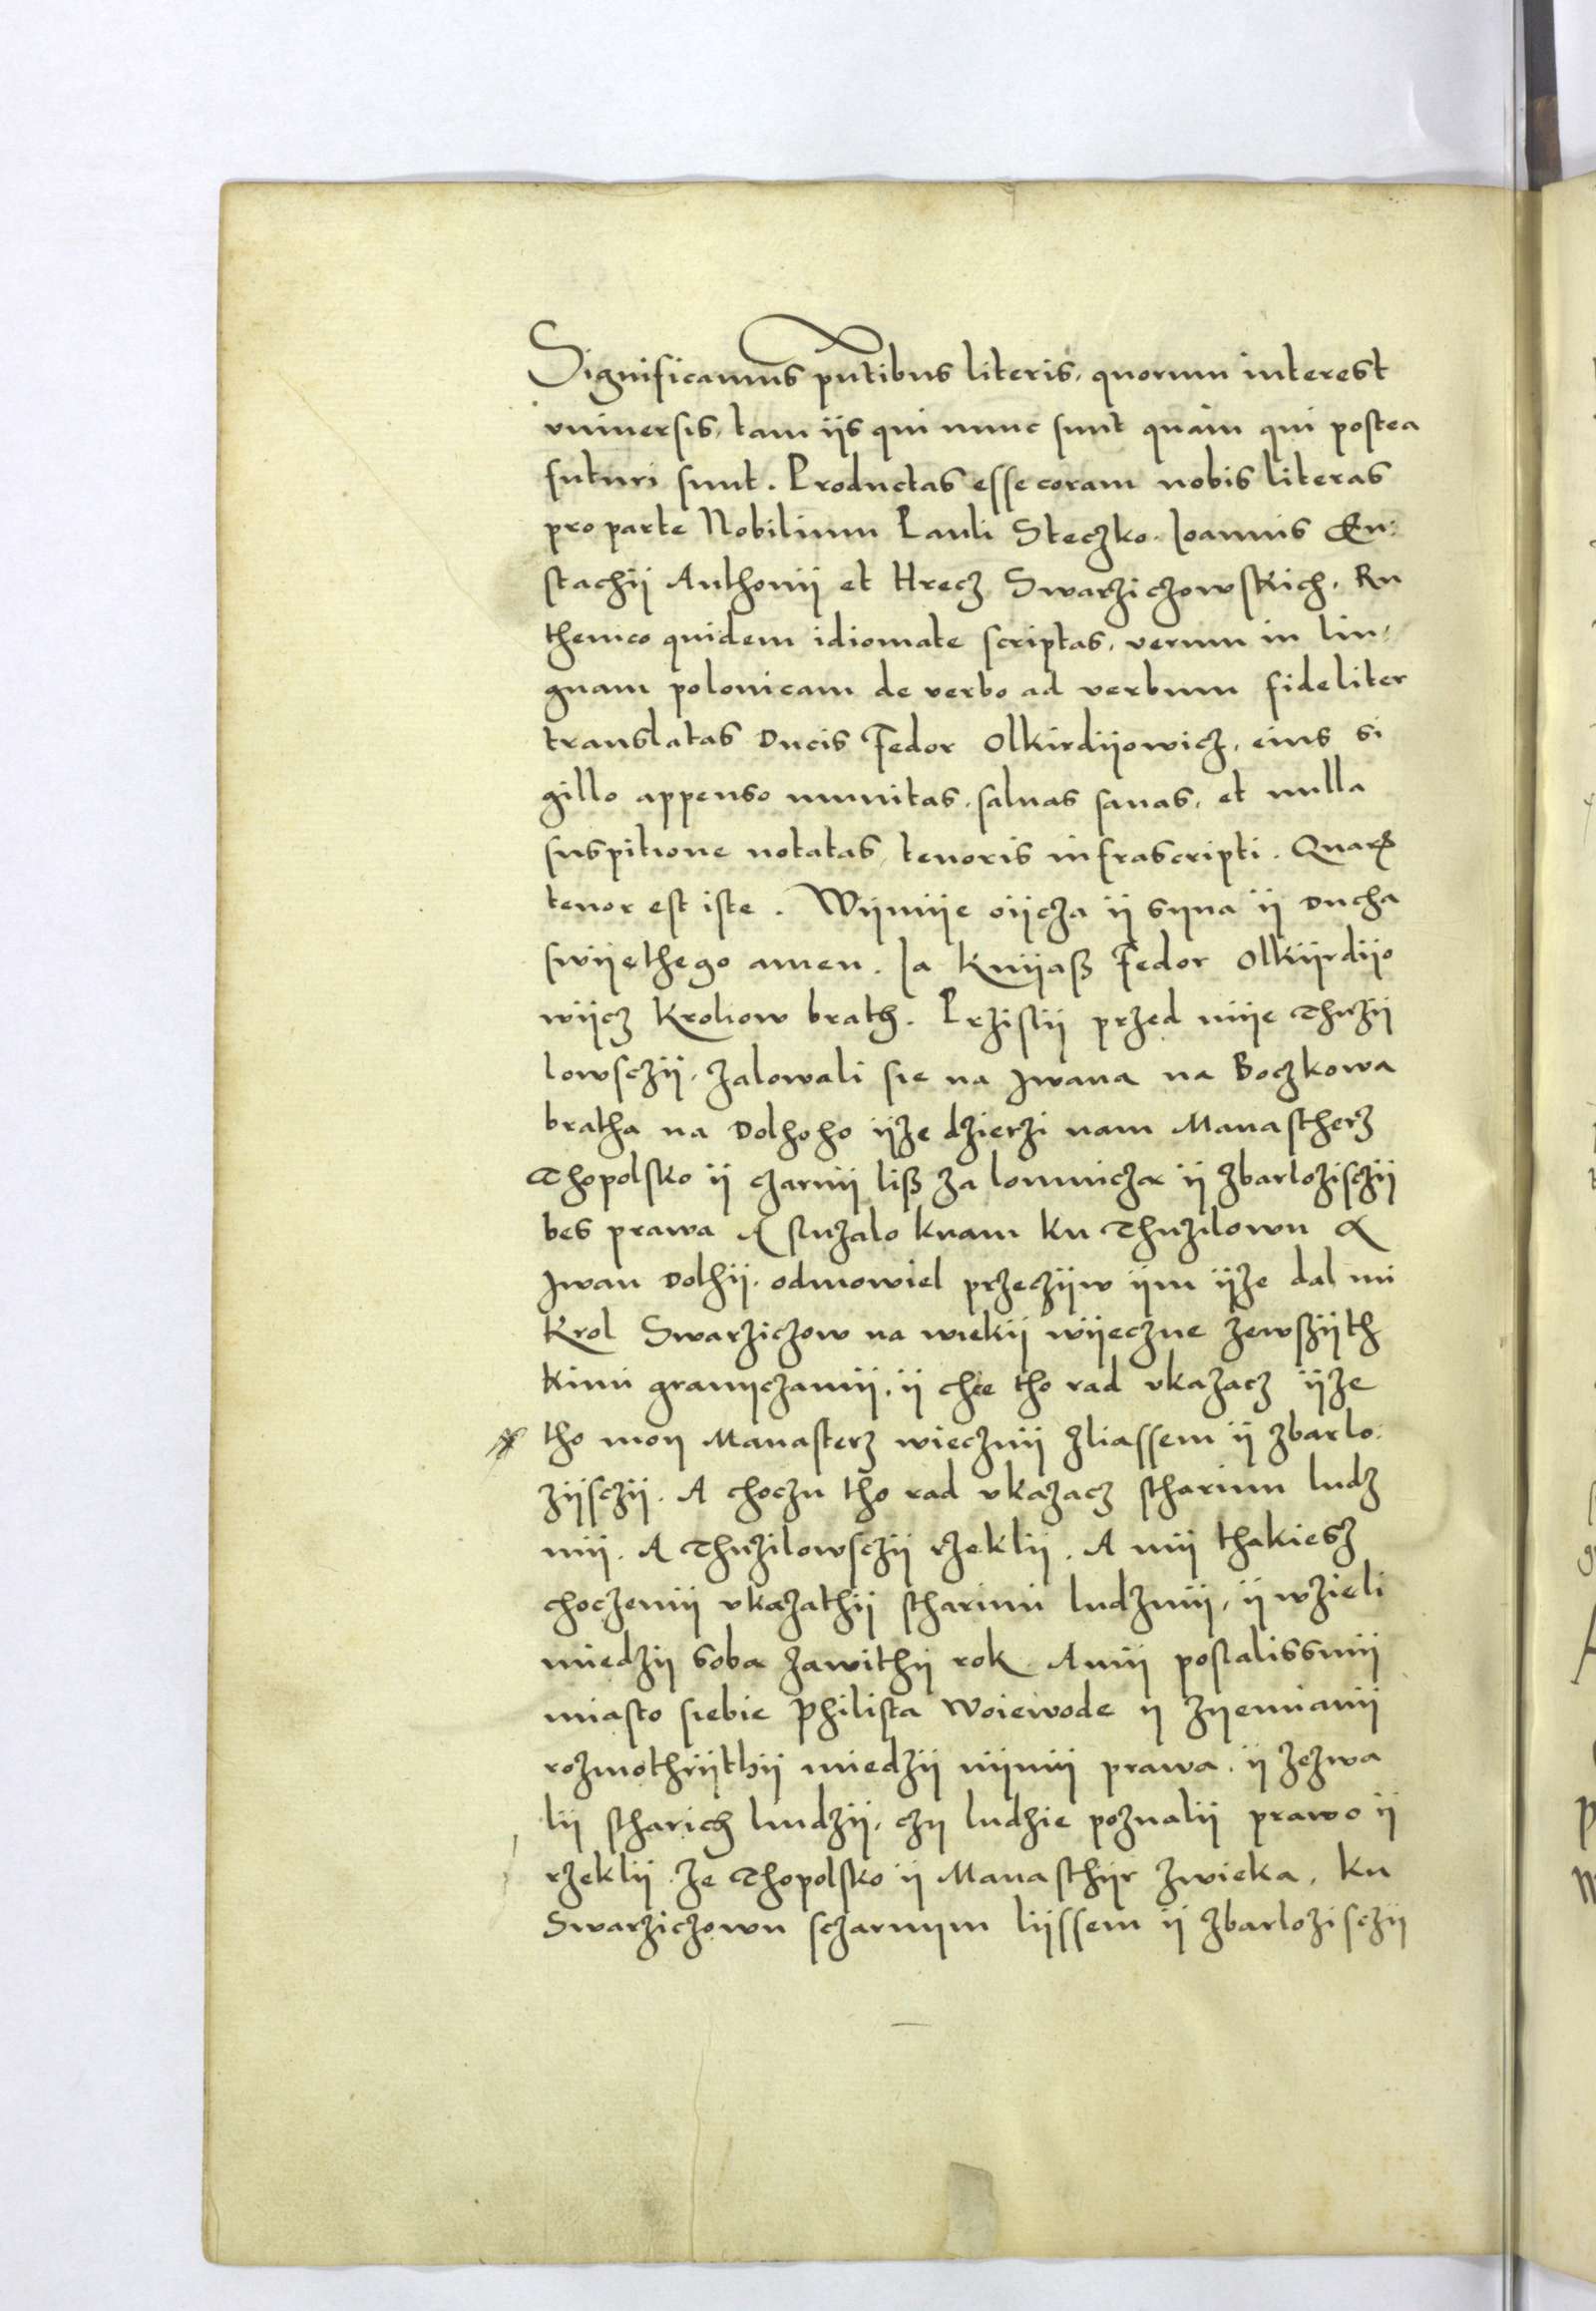 Significamus pñtibus literis, quorum interest
vniuersis, tam iis qui nunc sunt quàm qui postea
futuri sunt. Productas esse coram nobis literas
pro parte Nobilium Pauli Steczko. Ioannis Eu:
stachij Anthonij et Hrecz Swarziczowskich, Ru
thenico quidem idiomate scriptas, verum in lin:
guam polonicam de verbo ad verbum fideliter
translatas Ducis Fedor Olkirdijowicz, eius si
gillo appenso munitas, saluas sanas, et nulla
suspitione notatas, tenoris infrascripti. Quarꝝ
tenor est iste. Wijmije oijcza ij syna ij Ducha
swijethego amen. Ia Knijaß Fedor Olkijrdijo
wijcz Krolow brath. Przislij przed mije Thuzij
lowsczij, zalowali sie na Jwana na Boczkowa
bratha na Dolhoho ijze dzierzi nam Manastherz
Thopolsko ij czarnij liß za lomnicza ij zbarlozisczij
bes prawa A sluzalo knam ku Thuzilowu A
Jwan Dolhij, odmowiel przeczijw ijm ijze dal mi
Krol Swarziczow na wiekij wijeczne zewßijth
kimi granyczamij, ij chce tho rad vkazacz ijze
tho moy Manasterz wiecznij zliassem ij zbarlo:
zijsczij. A choczu tho rad vkazacz starimi ludz
mij. A Thuzilowsczij rzeklij. A mij thakiesz
choczemij vkazathij stharimi ludzmij, ij wzieli
miedzij soba zawithij rok Amij poslalissmij
miasto siebie Philista Woiewode y zyemianij
rozmothrijthij miedzij nijmij prawa, ij zezwa
lij stharich liudzij, czy ludzie poznalij prawo ij
rzeklij Ze Thopolsko ij Manasthijr zwieka, ku
Swarziczowu sczarnym lijssem ij zbarlozisczij